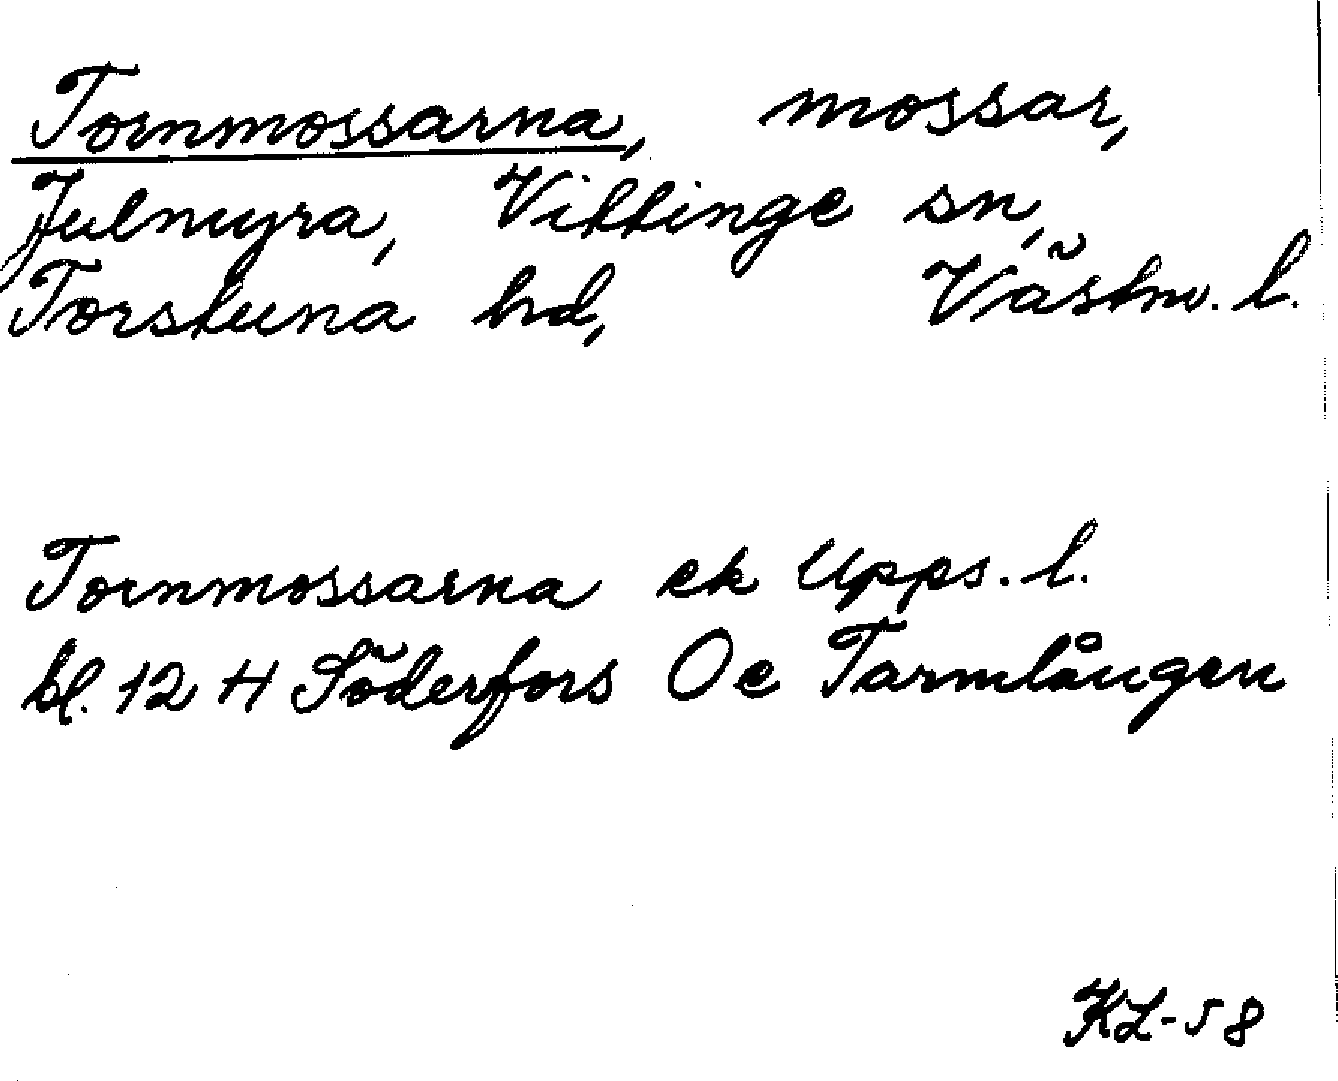 Tornmossarna, mossar,
Julmyra, Vittinge sn,
Torstuna hd, Västm. l.
Tornmossarna ek Upps. l.
bl. 12 H Söderfors Oe Tarmlången
KL-58